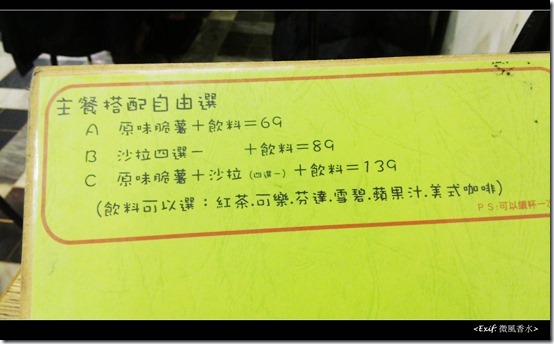 主餐搭配自由選
A 原味脆薯＋飲料＝69
B 沙拉四選一 ＋飲料＝89
C 原味脆薯＋沙拉(四選一)＋飲料＝139
(飲料可以選：紅茶.可樂.芬達.雪碧.蘋果汁.美式咖啡)
PS:可以續杯一次
<Exif: 微風香水>